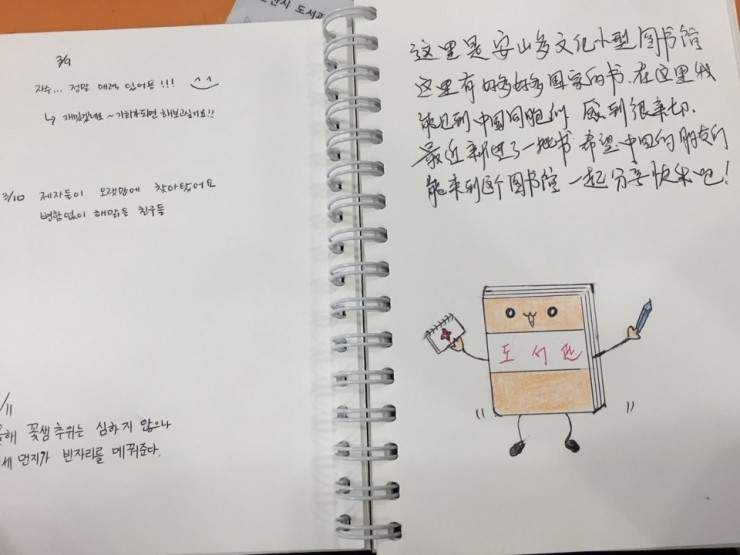 산시 도서관
3/9
자수... 정말 매력 있어용!!! ^^
↳ 재밌겠네요~ 기회가 되면 해보고 싶어요!!
3/10 제자들이 오랫만에 찾아왔어요
변함없이 해맑은 친구들
/11
해 꽃샘추위는 심하지 않으나
세먼지가 빈자리를 메꿔준다.
这里是安山多文化小型图书馆
这里有好多好多国家的书.在这里我
能见到中国同胞们 感到很亲切.
最近新进了一批书 希望中国的朋友们
能来到这个图书馆 一起分享快乐吧!
도서관